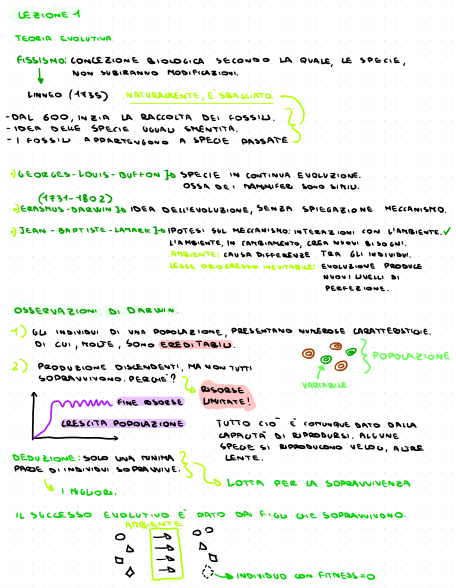 LEZIONE 1
TEORIA EVOLUTIVA
FISSISMO: CONCEZIONE BIOLOGICA SECONDO LA QUALE, LE SPECIE,
NON SUBIRANNO MODIFICAZIONI.
LINNEO (1735) NATURALMENTE, E' SBAGLIATO.
-DAL 600, INIZIA LA RACCOLTA DEI FOSSILI.
-IDEA DELLE SPECIE UGUALI SMENTITA.
- I FOSSILI APPARTENGONO A SPECIE PASSATE
GEORGES-LOUIS-BUFFON SPECIE IN CONTINUA EVOLUZIONE.
OSSA DEI MAMMIFERI SONO SIMILI.
(1731-1802)
ERASMUS-DARWIN IDEA DELL'EVOLUZIONE, SENZA SPIEGAZIONE MECCANISMO.
JEAN-BAPTISTE-LAMARK IPOTESI SUL MECCANISMO: INTERAZIONI CON L'AMBIENTE.
L'AMBIENTE, IN CAMBIAMENTO, CREA NUOVI BISOGNI.
AMBIENTE: CAUSA DIFFERENZE TRA GLI INDIVIDUI.
LEGGE PROGRESSO INEVITABILE: EVOLUZIONE PRODUCE
NUOVI LIVELLI DI
PERFEZIONE.
OSSERVAZIONI DI DARWIN.
1) GLI INDIVIDUI DI UNA POPOLAZIONE, PRESENTANO NUMEROSE CARATTERISTICHE.
DI CUI, MOLTE, SONO EREDITABILI.
POPOLAZIONE
VARIABILE
2) PRODUZIONE DISCENDENTI, MA NON TUTTI
SOPRAVVIVONO. PERCHE'?
RISORSE
LIMITATE!
FINE RISORSE
CRESCITA POPOLAZIONE
TUTTO CIO' E' COMUNQUE DATO DALLA
CAPACITA' DI RIPRODURSI. ALCUNE
SPECIE SI RIPRODUCONO VELOCI, ALTRE
LENTE.
DEDUZIONE: SOLO UNA MINIMA
PARTE DI INDIVIDUI SOPRAVVIVE.
LOTTA PER LA SOPRAVVIVENZA
I MIGLIORI.
IL SUCCESSO EVOLUTIVO E' DATO DAI FIGLI CHE SOPRAVVIVONO.
AMBIENTE
INDIVIDUO CON FITNESS=0